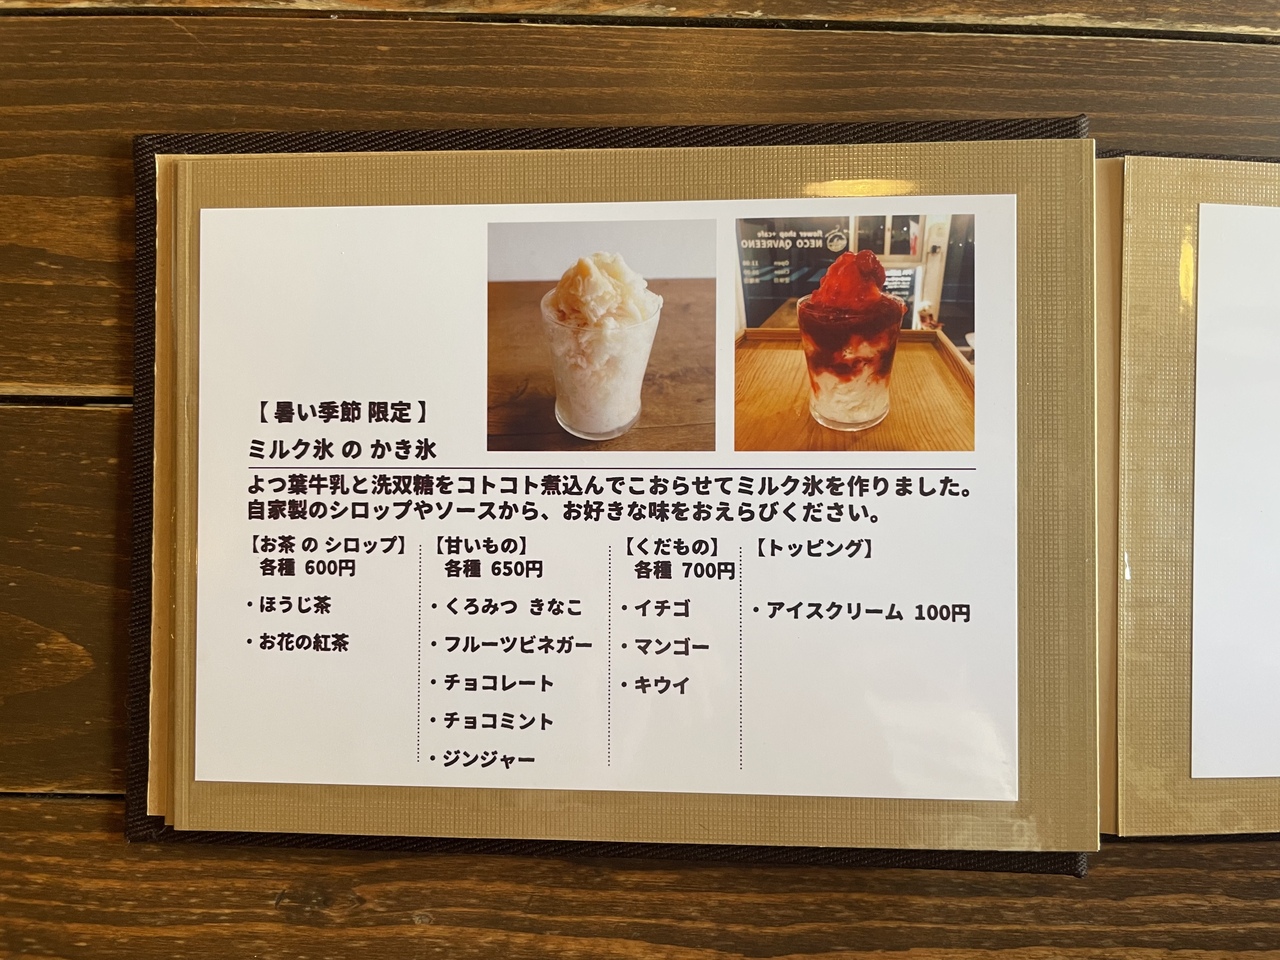 flower shop + cafe
NECO QAVREENO
Open
11:00
Close
【 暑い季節 限定 】
ミルク氷 の かき氷
よつ葉牛乳と洗双糖をコトコト煮込んでこおらせてミルク氷を作りました。
自家製のシロップやソースから、お好きな味をおえらびください。
【お茶 の シロップ】
各種 600円
・ほうじ茶
・お花の紅茶
【甘いもの】
各種 650円
・くろみつ きなこ
・フルーツビネガー
・チョコレート
・チョコミント
・ジンジャー
【くだもの】
各種 700円
・イチゴ
・マンゴー
・キウイ
【トッピング】
・アイスクリーム 100円